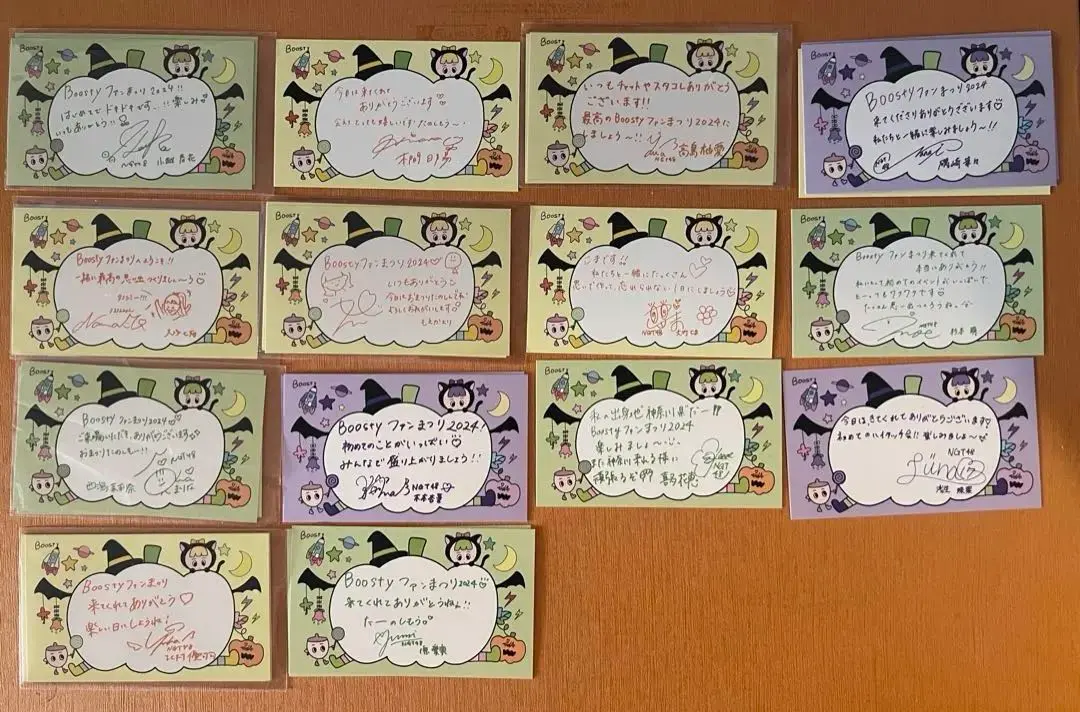 BOOSTY
Boosty ファンまつり 2024!!
はじめてで ドキドキです...!! 楽しみ
いつもありがとう!!
NGT48 小越春花
BOOSTY
今日は来てくれて
ありがとうございます
会えてとっても嬉しいです!たのしもう〜
本間日陽
BOOSTY
いつもチャットやスタコレありがとう
ございます!!
最高のBoostyファンまつり2024に
しましょう〜!!
NGT48 高島柚愛
BOOSTY
BOOSTY ファンまつり 2024
来てくださりありがとうございます
私たちと一緒に楽しみましょう〜!!
NGT48
BOOSTY
Boosty ファンまつりへようこそ!!
一緒に最高の思い出つくりましょ〜う
BOOSTY
Boosty ファンまつり2024♡
いつもありがとう
今日はおまつりたのしんでね
よろしくおねがいします
BOOSTY
私たちと一緒にたっくさん
思い出作って、忘れられない1日にしましょう
NGT48
BOOSTY
Boosty ファンまつり来てくれて
本当にありがとう!!
私にとって初めてのイベントがいっぱいで
とーってもワクワクです
たくさん思い出つくろうね
NGT48 杉本萌
BOOSTY
Boostyファンまつり2024♡
ご来場いただき、ありがとうございます
おまつりたのしも〜!!
NGT48
西潟茉莉奈
BOOSTY
BOOSTY ファンまつり 2024!
初めてのことがいっぱい♡
みんなで盛り上がりましょう!!
NGT48
BOOSTY
私の出身地 神奈川県だー!!
Boostyファンまつり2024
楽しみましょ〜
また神奈川来れる様に
頑張るぞ
NGT48
喜多花恵
BOOSTY
今日はきてくれてありがとうございます♡
初めてのハイタッチ会!! 楽しみましょ〜
NGT48
BOOSTY
Boosty ファンまつり
来てくれてありがとう♡
楽しい日にしようね!
NGT48
BOOSTY
Boosty ファンまつり2024♡
来てくれてありがとうねん!!
たーのしもう
NGT48